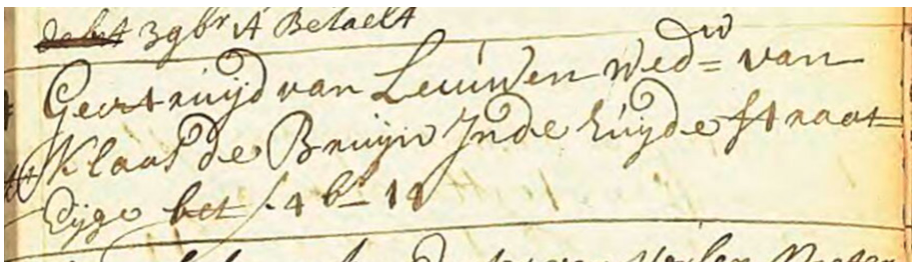 3 gbr it Betaelt
Geertruijd van Leeuwen wed=w van
Klaas de Bruijn Jnde Zuijde straat
Eijge bet f 4 b- 11